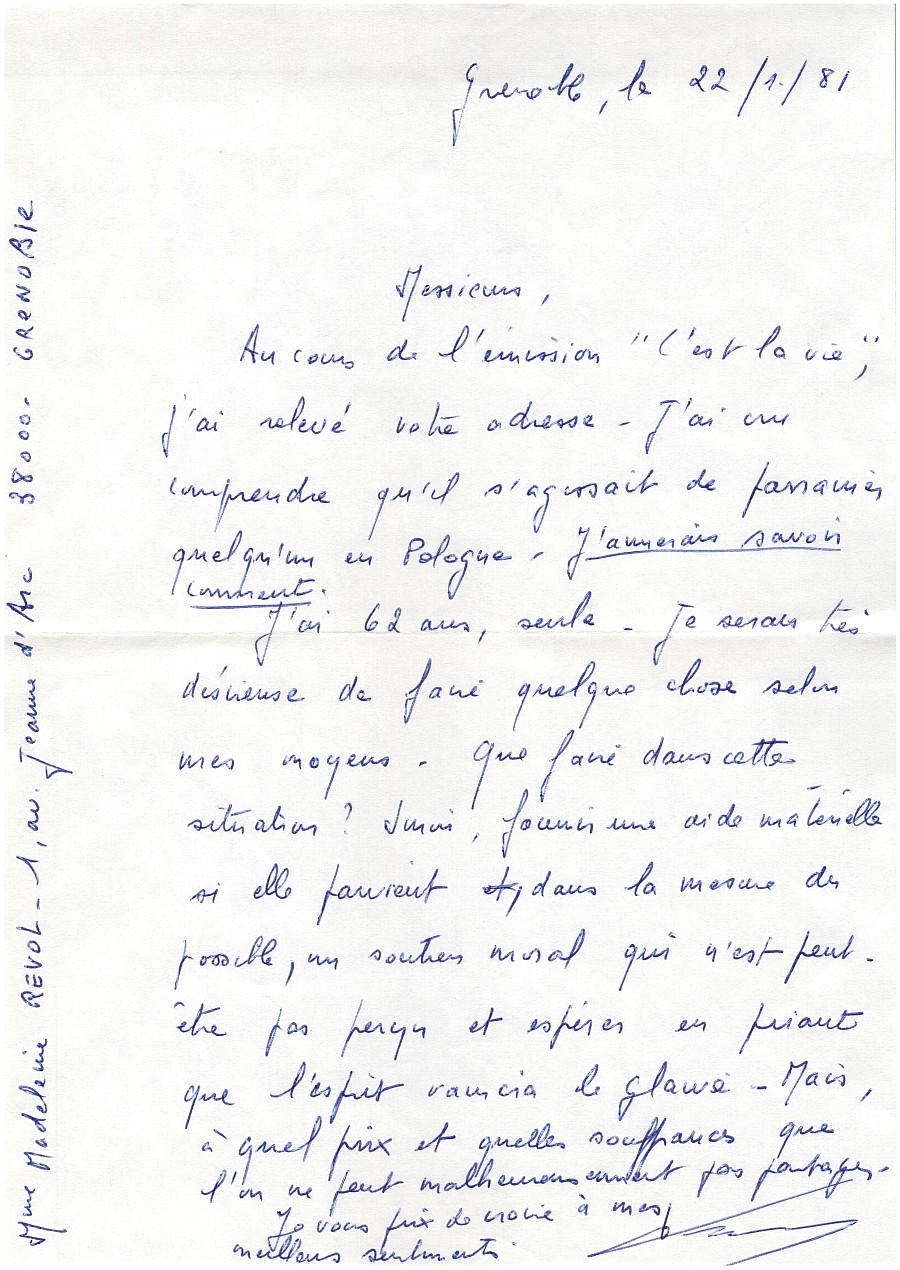 Grenoble, le 22/1./81
Messieurs,
Au cours de l'émission "C'est la vie",
j'ai relevé votre adresse - J'ai cru
comprendre qu'il s'agissait de parrainer
quelqu'un en Pologne. J'aimerais savoir
comment.
J'ai 62 ans, seule - Je serais très
désireuse de faire quelque chose selon
mes moyens. Que faire dans cette
situation? Sinon, fournir une aide matérielle
si elle parvient et, dans la mesure du
possible, un soutien moral qui n'est peut-
être pas perçu et espérer en priant
que l'esprit vaincra le glaive - Mais,
à quel prix et quelles souffrances que
l'on ne peut malheureusement pas partager-
Je vous prie de croire à mes
meilleurs sentiments.
Mme Madeleine REVOL - 1, av. Jeanne d'Arc 38000- GRENOBlE